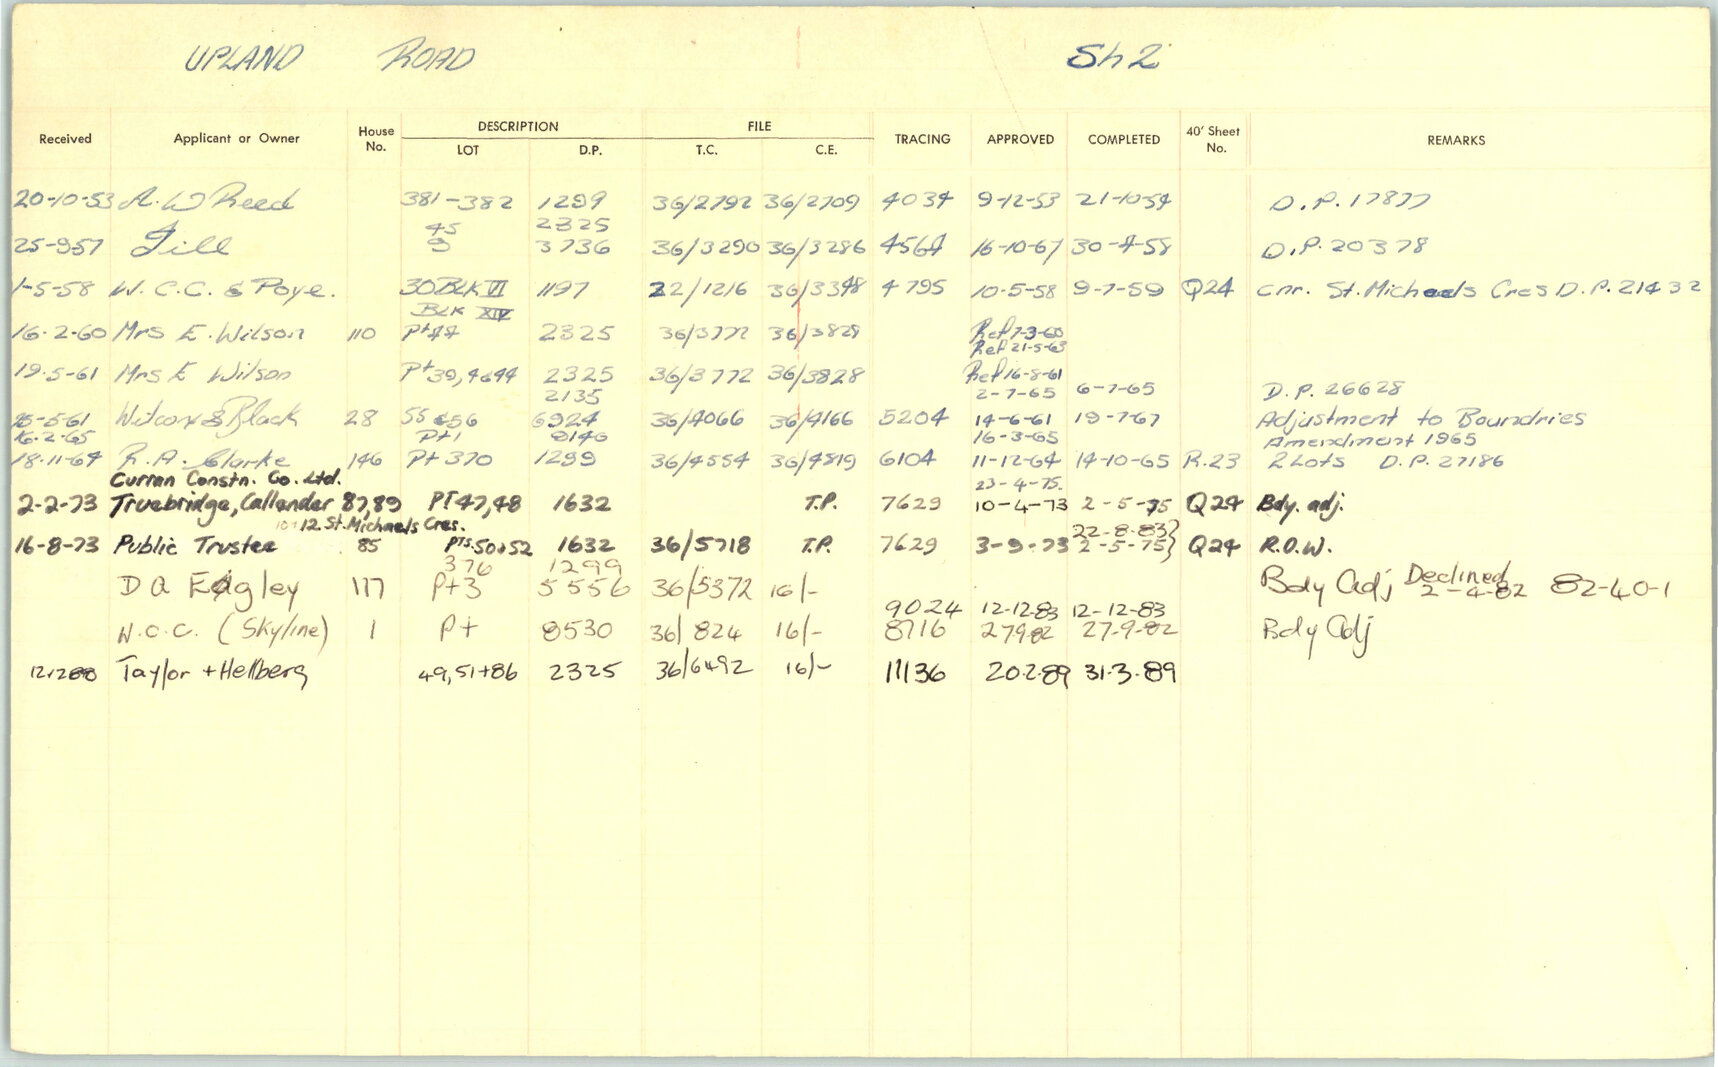 UPLAND ROAD Sh 2
Received Applicant or Owner House No. DESCRIPTION LOT D.P. FILE T.C. C.E. TRACING APPROVED COMPLETED 40' Sheet No. REMARKS
20-10-53 A. W Reed 381-382 1299 36/2792 36/2709 4034 9-12-53 21-10-54 D.P. 17877
45 2325
25-9-57 Gill 3 3736 36/3290 36/3286 4564 16-10-67 30-4-58 D.P. 20378
1-5-58 W.C.C. & Poye. 30 BLK VI 1197 22/1216 36/3348 4795 10-5-58 9-7-59 Q24 cnr. St. Michaels Cres D.P. 21432
BLK XIV
16-2-60 Mrs E. Wilson 110 Pt 44 2325 36/3772 36/3829 Ref 7-3-60
Ref 21-5-63
19-5-61 Mrs E Wilson Pt 39, 4 & 44 2325 36/3772 36/3828 Ref 16-8-61
2135 2-7-65 6-7-65 D.P. 26628
Wilcox & Black 28 55 & 56 6924 36/4066 36/4166 5204 14-6-61 19-7-67 Adjustment to Boundries
16-2-65 Pt 1 8146 16-3-65 Amendment 1965
18-11-64 R.A. Clarke 146 Pt 370 1299 36/4554 36/4819 6104 11-12-64 14-10-65 R.23 2 Lots D.P. 27186
Curran Constn. Co. Ltd. 23-4-75.
2-2-73 Truebridge, Callender 87,89 PT 47,48 1632 T.P. 7629 10-4-73 2-5-75 Q24 Bdy. adj.
10+12 St. Michaels Cres. 22-8-83
16-8-73 Public Trustee 85 PTs. 50+52 1632 36/5718 T.P. 7629 3-9-73 2-5-75 Q24 R.O.W.
376 1299 Declined
D A Edgley 117 Pt 3 5556 36/5372 16/- Bdy Adj 2-4-82 82-40-1
9024 12-12-83 12-12-83
W.C.C. (Skyline) 1 Pt 8530 36/824 16/- 8716 27982 27-9-82 Bdy Adj
121288 Taylor + Hellberg 49,51+86 2325 36/6492 16/- 11136 20.2.89 31.3.89